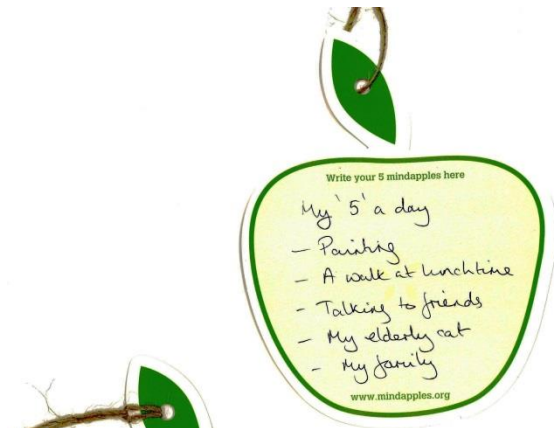 Write your 5 mindapples here
My '5' a day
- Painting
- A walk at lunchtime
- Talking to friends
- My elderly cat
- My family
www.mindapples.org